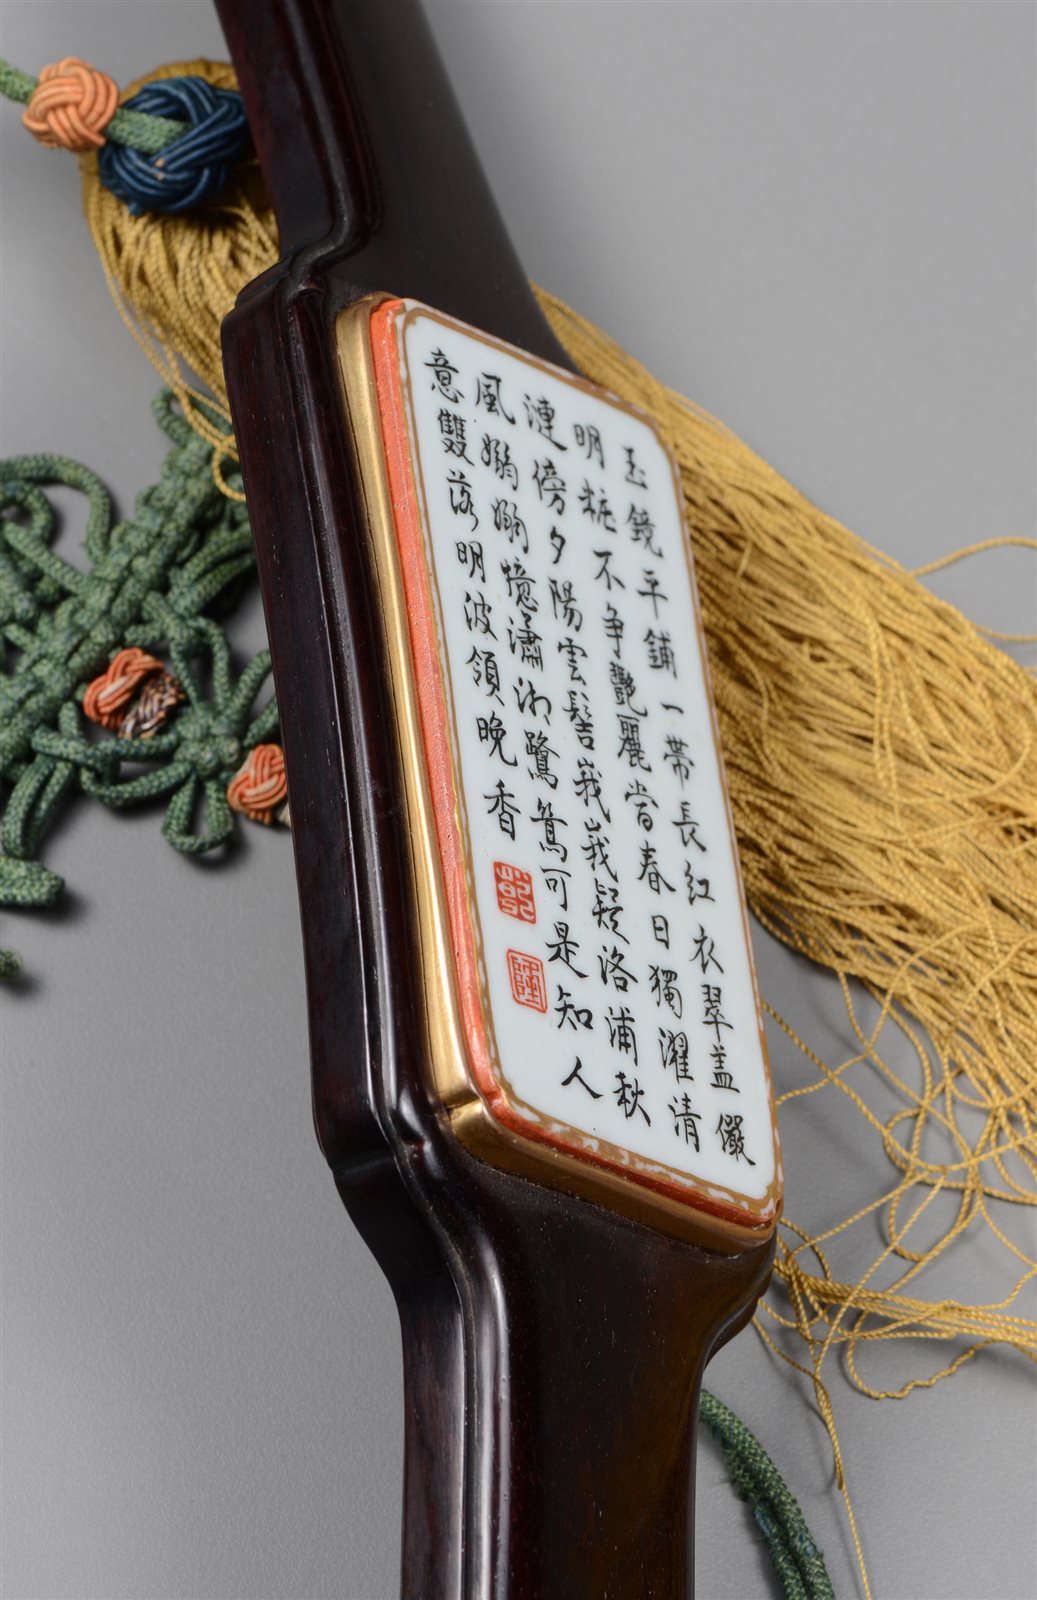 玉鏡平鋪一帶長紅衣翠盖儼
明粧不爭艷麗當春日獨濯清
漣傍夕陽雲髻峩峩疑洛浦秋
風嫋嫋憶瀟湘鷺鴛可是知人
意雙落明波領晚香
乾
隆